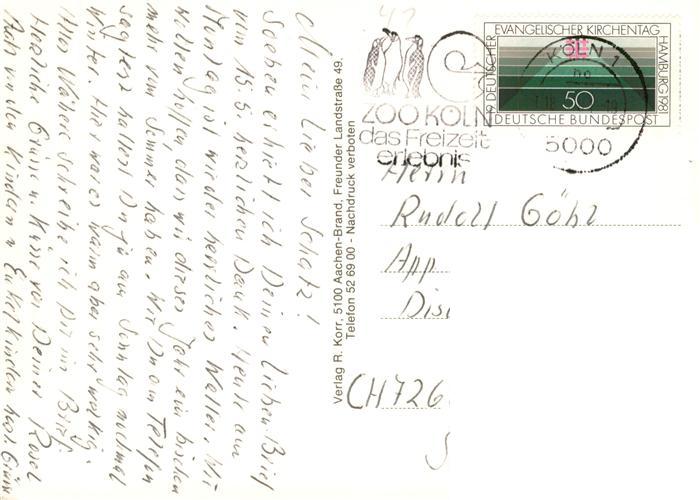 Mein lieber Schatz!
Soeben erhielt ich Deinen lieben Brief
vom 15.5. herzlichen Dank. Heute am
Montag ist wieder herrliches Wetter. Wir
wollen hoffen, das wir dieses Jahr ein bischen
mehr Sommer haben. Wie Du am Telefon
sagtest hattest Du ja am Sonntag nochmal
Winter. Hier war es warm aber sehr windig.
Alles Nähere schreibe ich Dir im Brief.
Herzliche Grüsse u. Küsse von Deiner Rosel
Auch von den Kindern u Enkelkindern herzl. Grüsse
Verlag R. Korr, 5100 Aachen-Brand, Freunder Landstraße 49,
Telefon 52 69 00 - Nachdruck verboten
ZOO KÖLN
das Freizeit
erlebnis
KÖLN 1
5000
19. DEUTSCHER EVANGELISCHER KIRCHENTAG HAMBURG 1981
50
DEUTSCHE BUNDESPOST
Herrn
Rudolf Göhl
App
CH 726